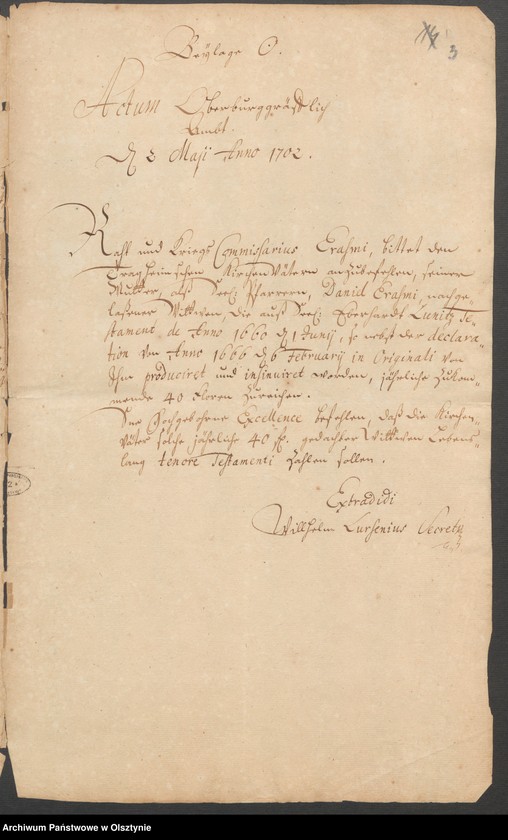 Beylage O.
3
Actum Oberburggräfflich
Ambt.
D. 2 Maji Anno 1702.
Raht und Kriegs Commissarius Erasmi, bittet den
Tragheimschen Kirchen Vätern anzubefehlen, seiner
Mutter, als Seel. Pfarrern, Daniel Erasmi, nachge-
laßener Wittwen, die auß Seel. Eberhardt Lunitz Te-
stament de Anno 1660 d. 1 Junij, so nebst der declara-
tion von Anno 1666 d. 6 February in Originali von
Ihm produciret und insinuiret worden, jährliche zukom-
mende 40 Floren zureichen.
Sne Hochgebohrne Excellence befehlen, daß die Kirchen-
väter solche jährliche 40 fl. gedachter Wittwen Lebens-
lang tenore Testamenti zahlen sollen.
Extradidi
Willhelm Lursenius Secret.
Archiwum Państwowe w Olsztynie